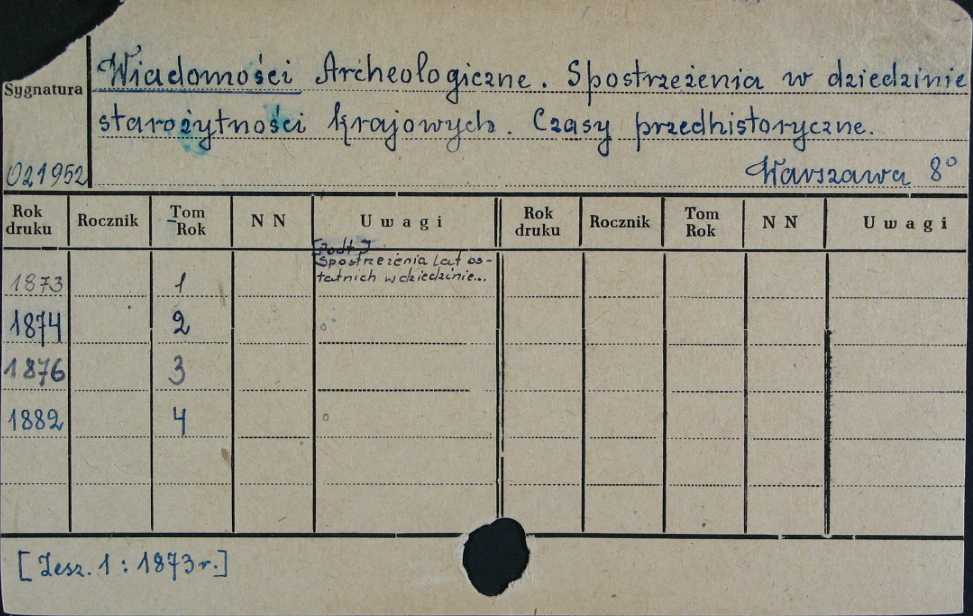 Wiadomości Archeologiczne. Spostrzeżenia w dziedzinie
Sygnatura
starożytności krajowych. Czasy przedhistoryczne.
021952
Warszawa 8°
Rok druku Rocznik Tom Rok N N Uwagi Rok druku Rocznik Tom Rok N N Uwagi
[Podt. I
Spostrzeżenia lat os-
1873 1 tatnich w dziedzinie...
1874 2
1876 3
1882 4
[Zesz. 1 : 1873 r.]